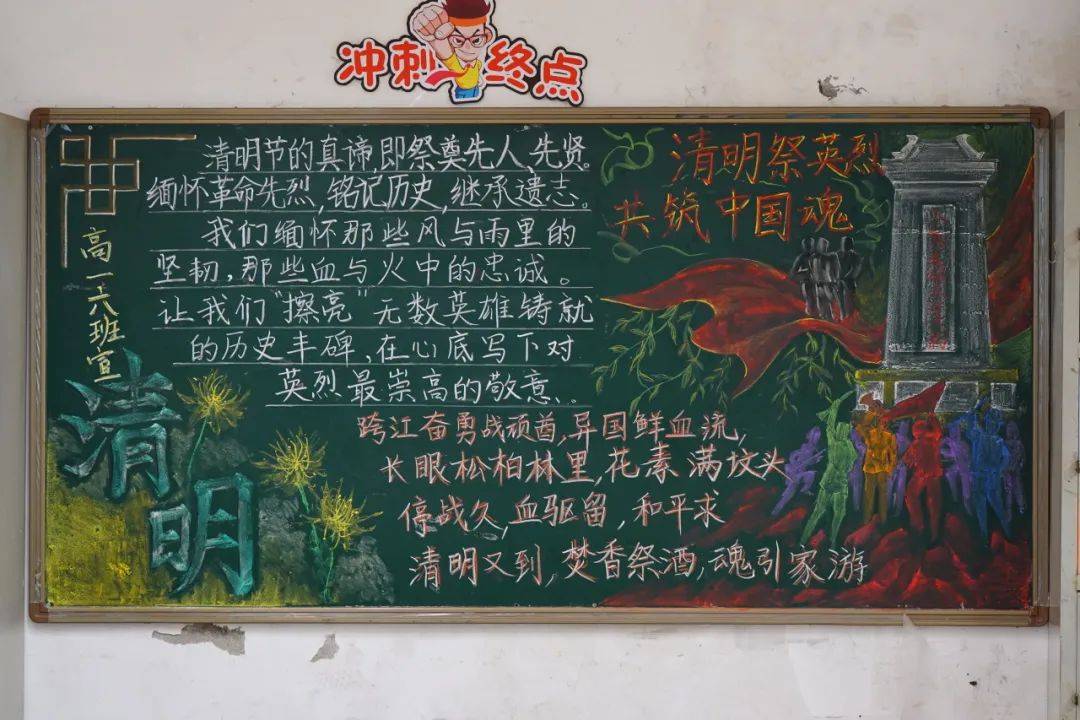 冲刺终点
清明节的真谛,即祭奠先人、先贤。
缅怀革命先烈,铭记历史,继承遗志。
我们缅怀那些风与雨里的
坚韧,那些血与火中的忠诚。
让我们“擦亮”无数英雄铸就
的历史丰碑、在心底写下对
英烈最崇高的敬意、。
高一六班宣
清明
清明祭英烈
共筑中国魂
跨江奋勇战顽酋,异国鲜血流,
长眼松柏林里,花素满坟头
停战久,血驱留,和平求
清明又到,焚香祭酒,魂引家游